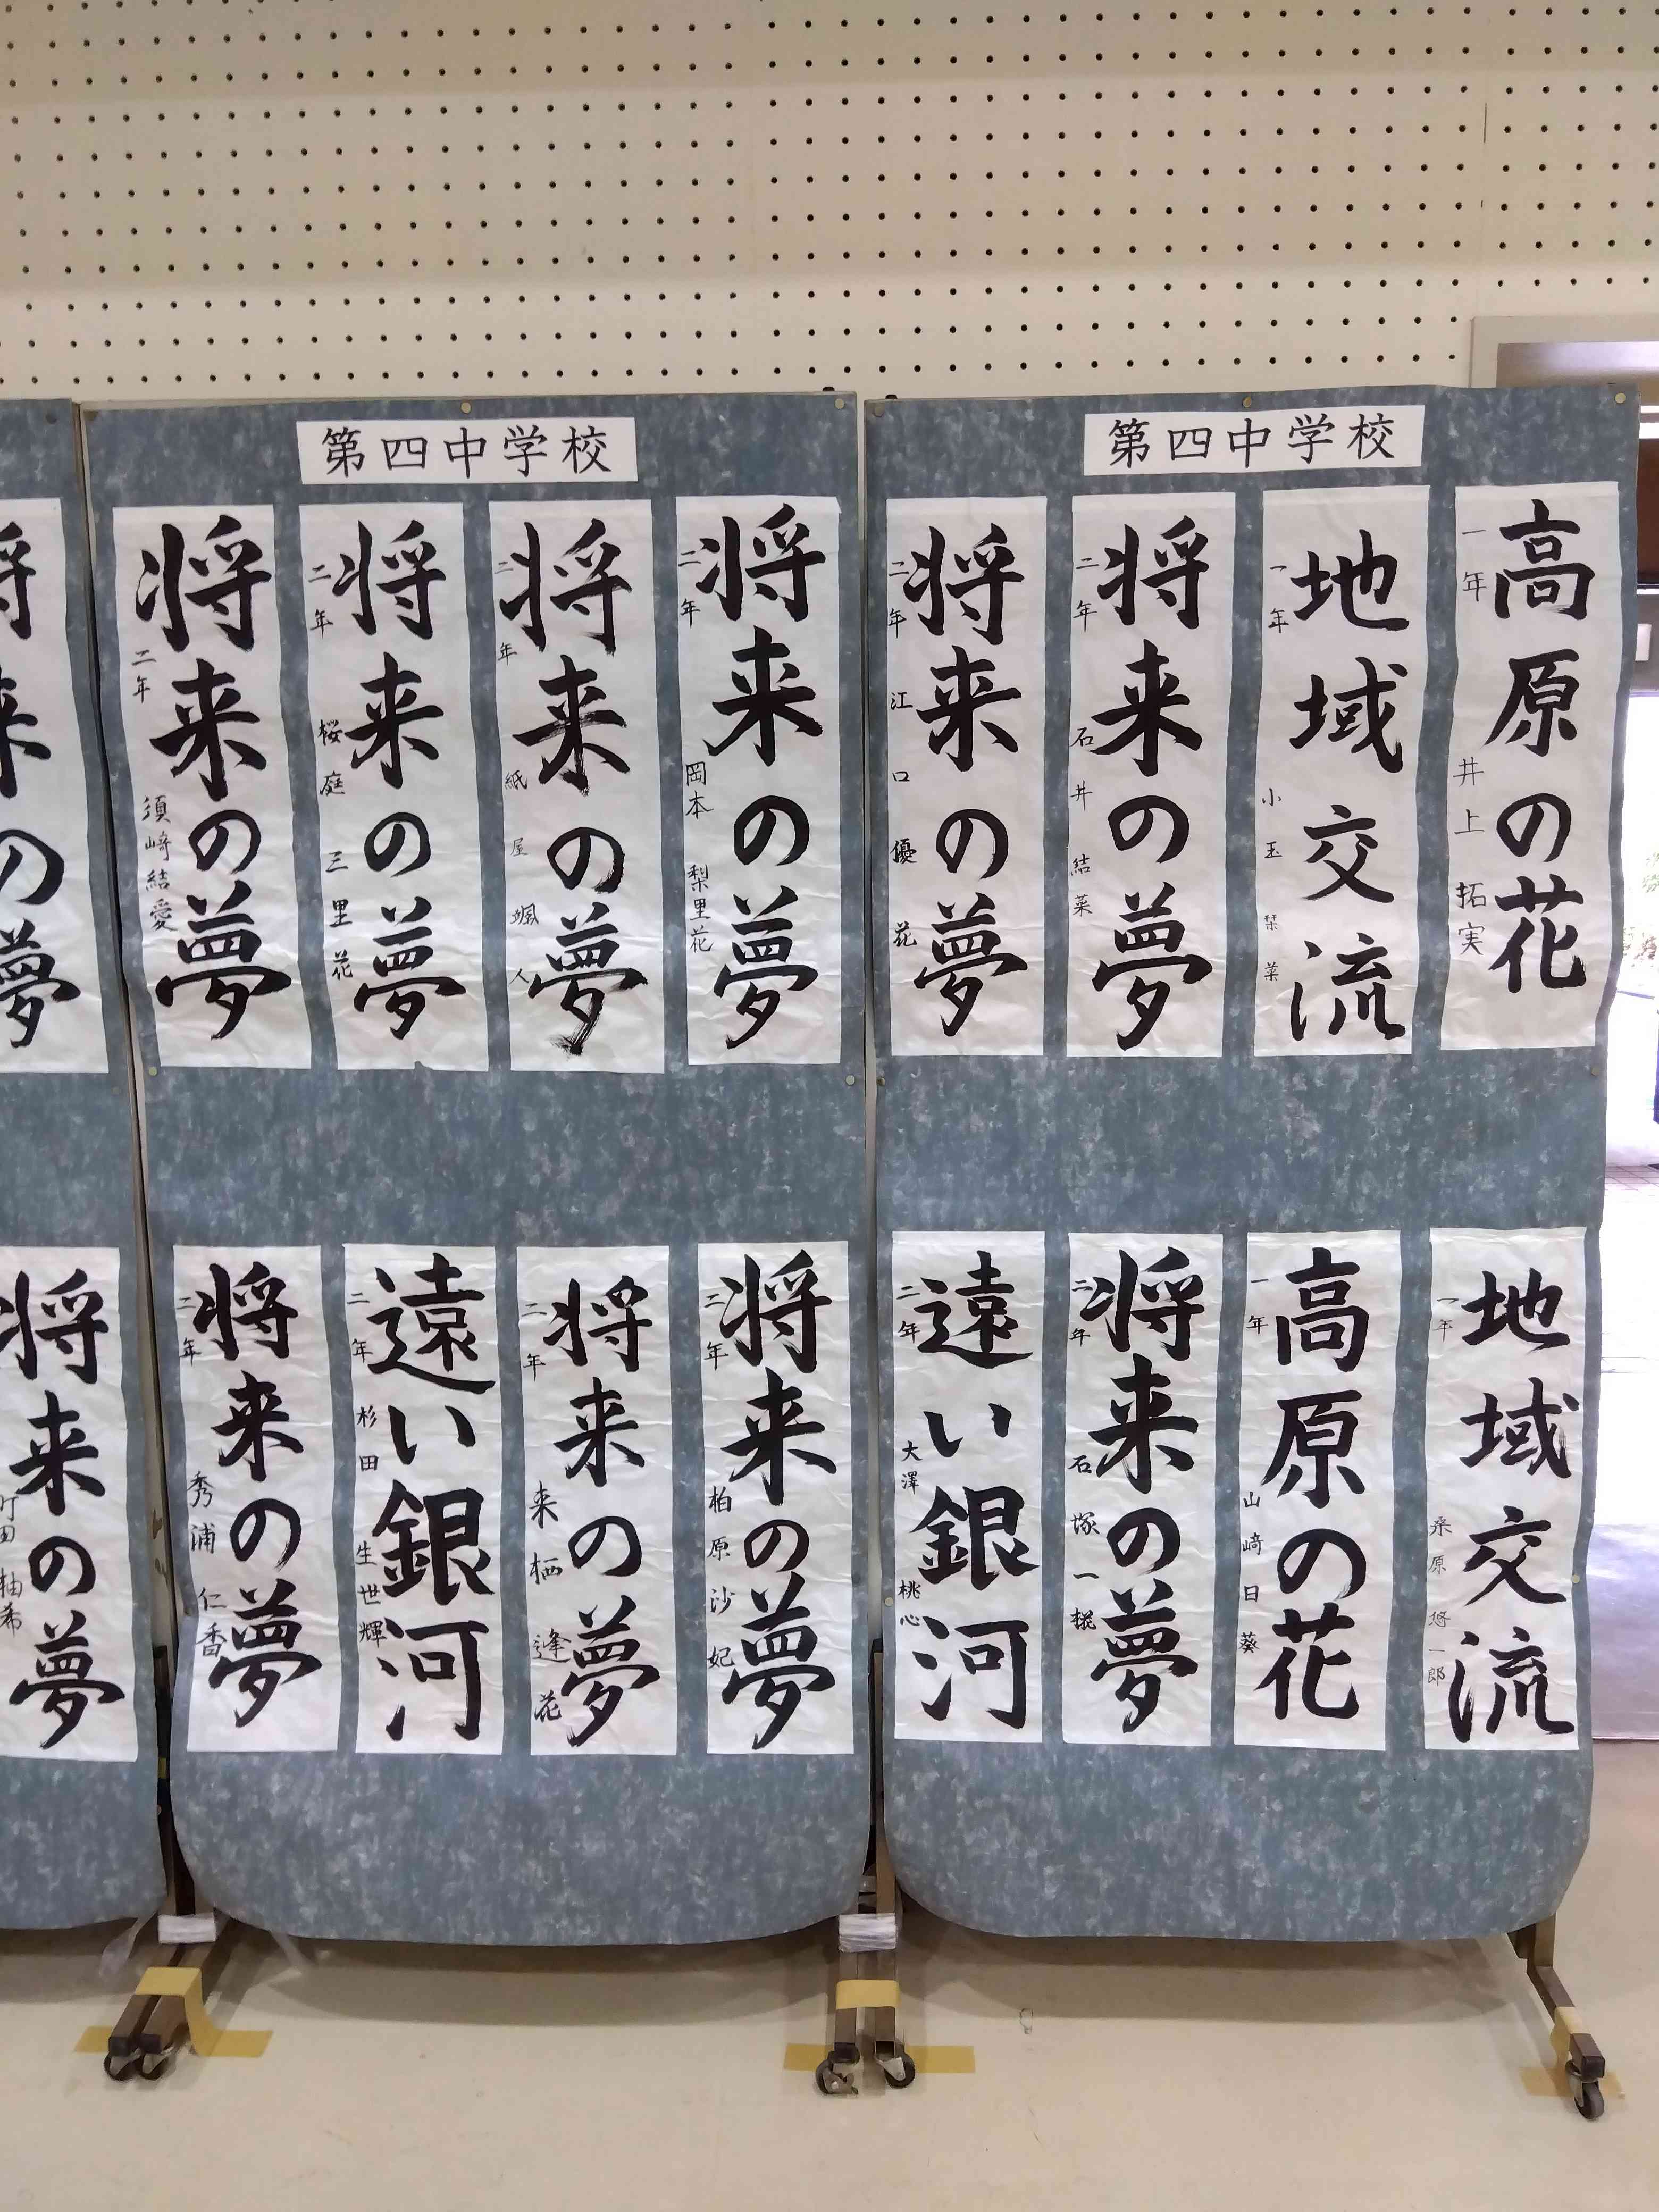 第四中学校
高原の花
一年 井上 拓実
地域交流
一年 小玉 栞菜
将来の夢
二年 石井 結菜
将来の夢
二年 江口 優花
地域交流
一年 桑原 悠一郎
高原の花
一年 山﨑 日葵
将来の夢
二年 石塚 一椛
遠い銀河
二年 大澤 桃心
第四中学校
将来の夢
二年 岡本 梨里花
将来の夢
二年 紙屋 颯人
将来の夢
二年 桜庭 三里花
将来の夢
二年 須﨑 結愛
将来の夢
二年 柏原 沙妃
将来の夢
二年 来栖 逢花
遠い銀河
二年 杉田 生世輝
将来の夢
二年 秀浦 仁香
将来の夢
将来の夢
町田 柚希